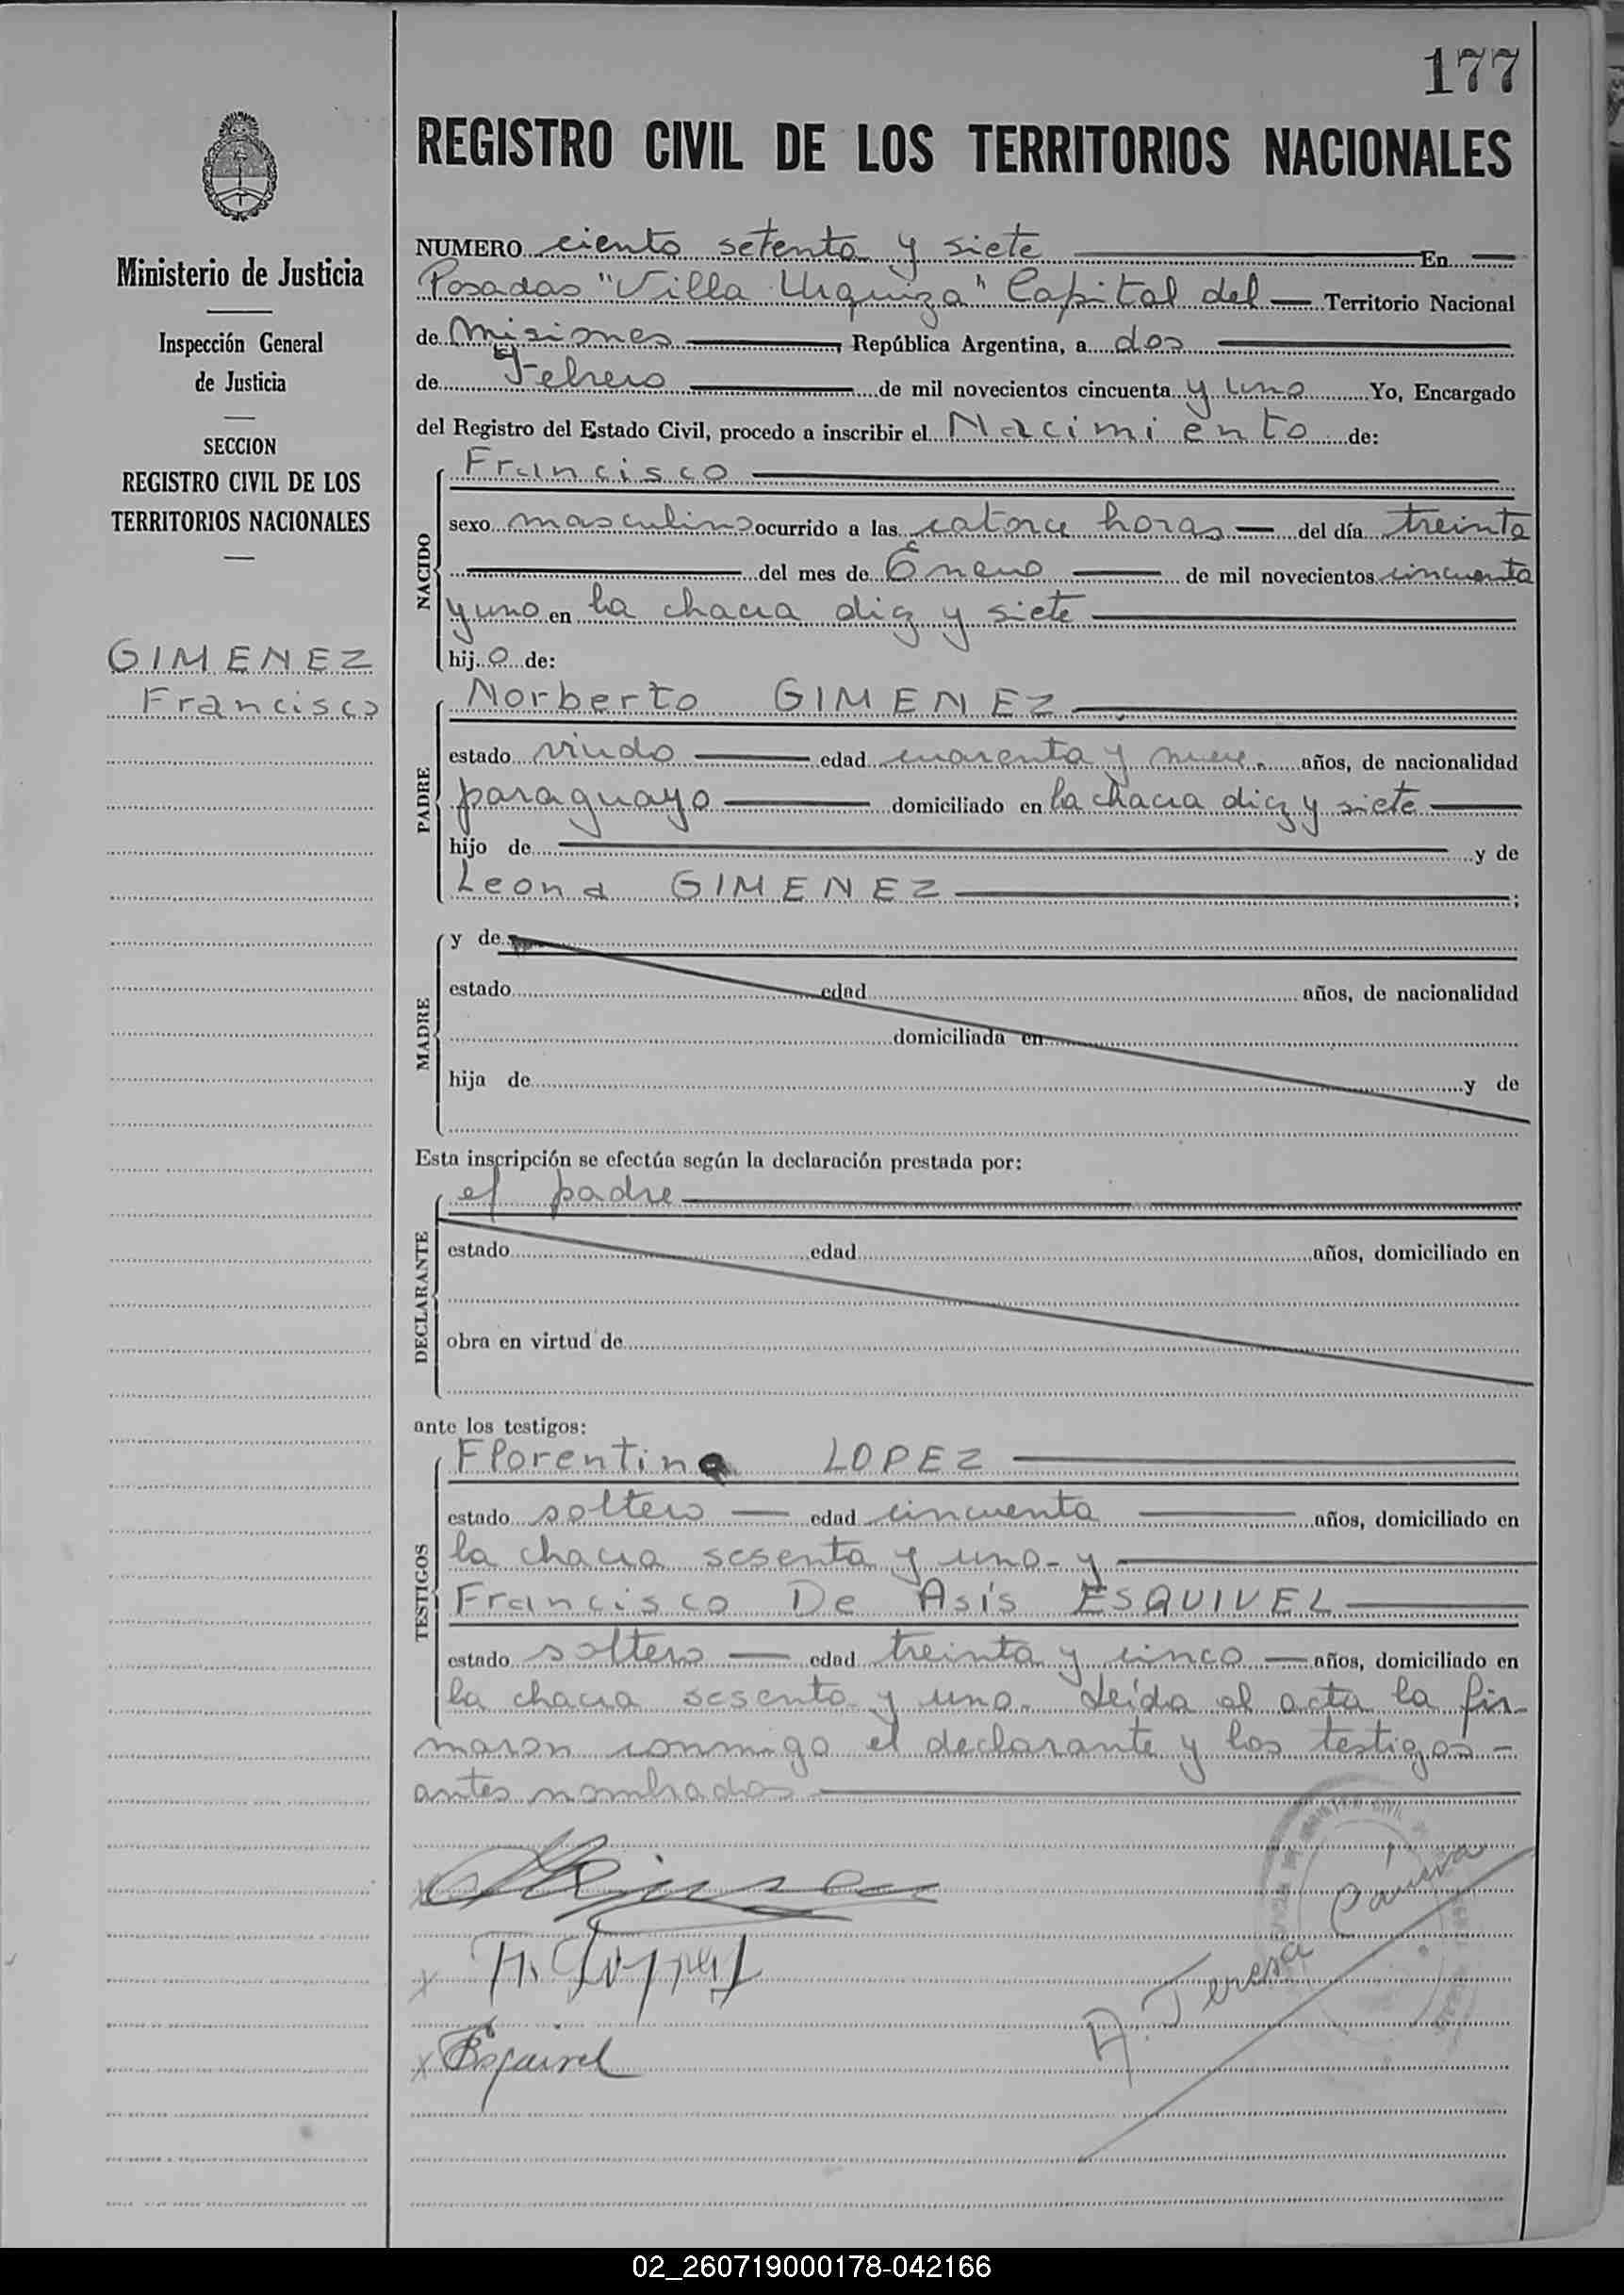 177
REGISTRO CIVIL DE LOS TERRITORIOS NACIONALES
Ministerio de Justicia
Inspección General
de Justicia
SECCION
REGISTRO CIVIL DE LOS
TERRITORIOS NACIONALES
GIMENEZ
Francisco
NUMERO ciento setenta y siete En
Posadas "Villa Urquiza" Capital del Territorio Nacional
de Misiones, República Argentina, a dos
de Febrero de mil novecientos cincuenta y uno Yo, Encargado
del Registro del Estado Civil, procedo a inscribir el Nacimiento de:
NACIDO
Francisco
sexo masculino ocurrido a las catorce horas — del día treinta
del mes de Enero de mil novecientos cincuenta
y uno en la chacra diez y siete
hijo de:
PADRE
Norberto GIMENEZ
estado viudo edad cuarenta y nueve años, de nacionalidad
paraguayo domiciliado en la chacra diez y siete
hijo de y de
Leona GIMENEZ ;
MADRE
y de
estado edad años, de nacionalidad
domiciliada en
hija de y de
Esta inscripción se efectúa según la declaración prestada por:
DECLARANTE
el padre
estado edad años, domiciliado en
obra en virtud de
ante los testigos:
TESTIGOS
Florentino LOPEZ
estado soltero — edad cincuenta años, domiciliado en
la chacra sesenta y uno - y
Francisco De Asís ESQUIVEL
estado soltero — edad treinta y cinco — años, domiciliado en
la chacra sesenta y uno. Leída el acta la fir-
maron conmigo el declarante y los testigos -
antes nombrados
Esquivel
A. Teresa
02_260719000178-042166